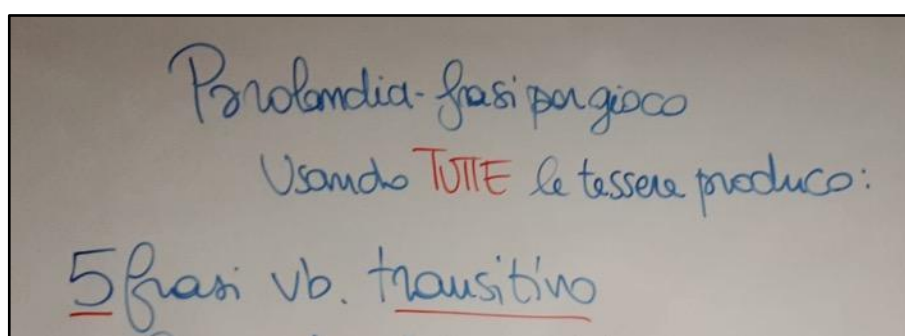 Parolandia - frasi per gioco
Usando TUTTE le tessere produco:
5 frasi vb. transitivo